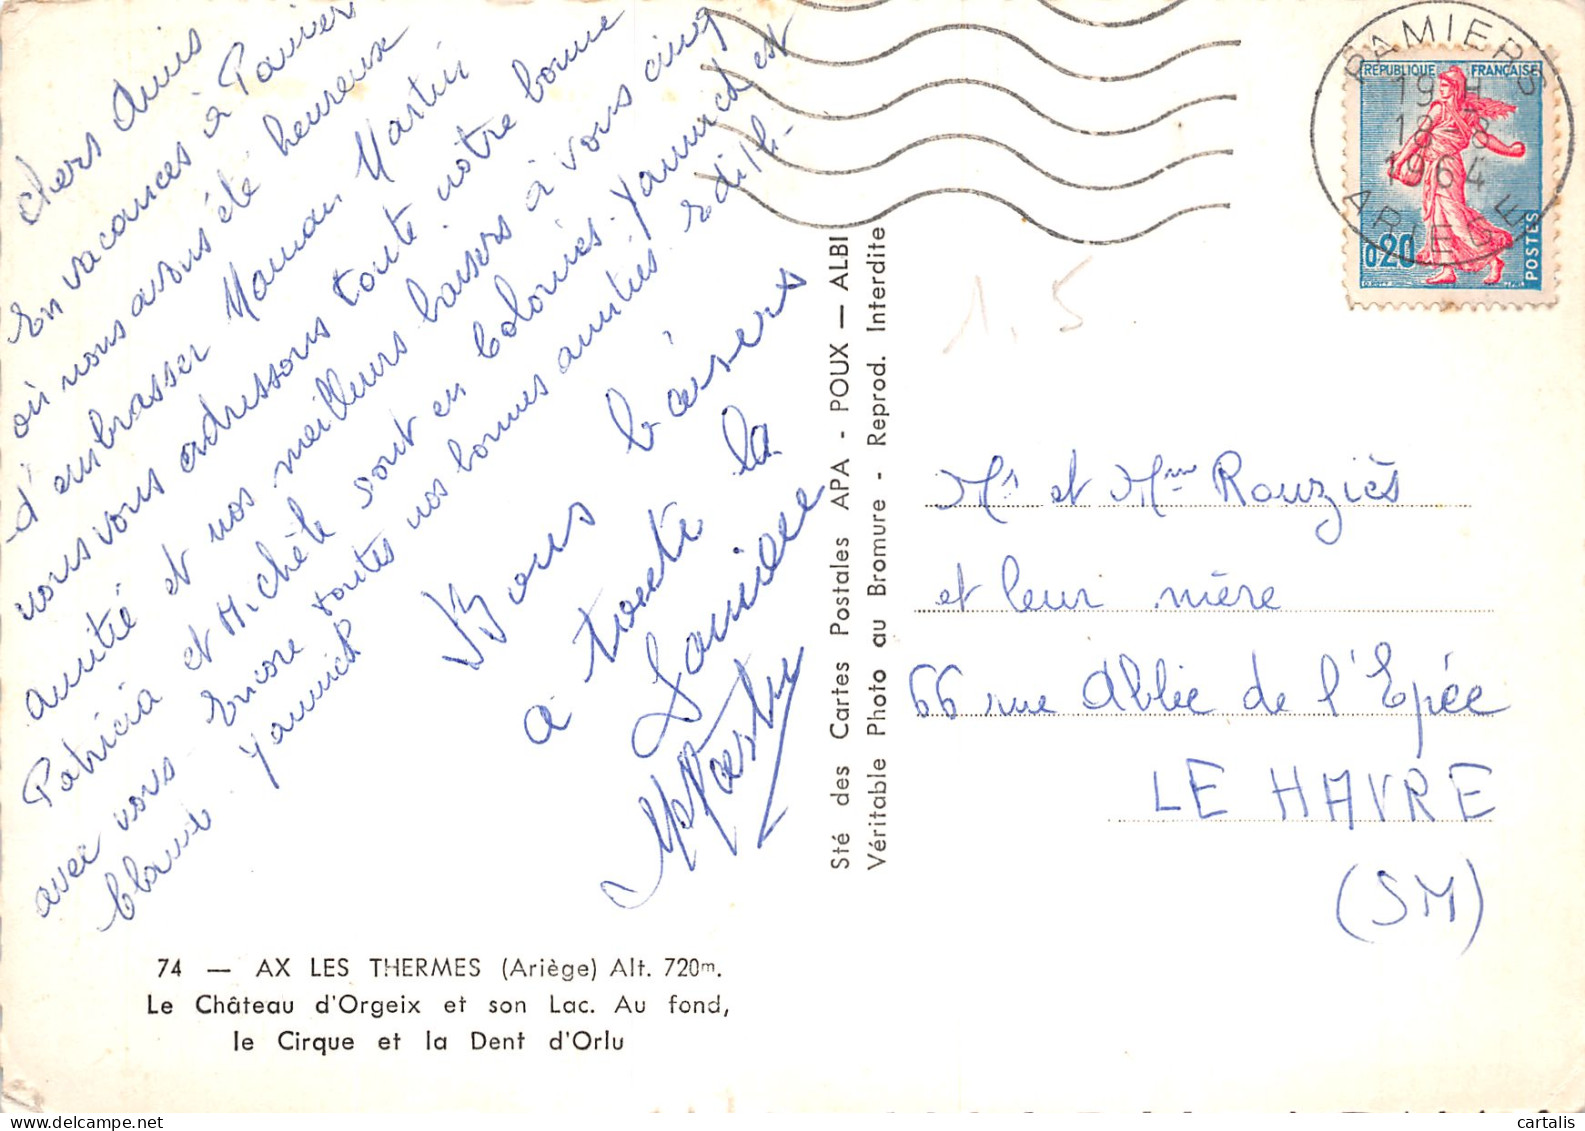 chers Amis
En vacances à Pamiers
où nous avons été heureux
d'embrasser Maman Martin
nous vous adressons toute notre bonne
amitié et nos meilleurs baisers à vous cinq
Patricia et Michèle sont en Colonies. Yannick est
avec nous. Encore toutes nos bonnes amitiés
Yannick
Bons baisers
a toute la
famille
74 — AX LES THERMES (Ariège) Alt. 720m.
Le Château d'Orgeix et son Lac. Au fond,
le Cirque et la Dent d'Orlu
Sté des Cartes Postales APA - POUX — ALBI
Véritable Photo au Bromure - Reprod. Interdite
1.5
PAMIERS
19 H
18-8
1964
ARIEGE
REPUBLIQUE FRANÇAISE
0,20
POSTES
Mr et Mme Rouziès
et leur mère
66 rue Abbé de l'Epée
LE HAVRE
(SM)
cartalis